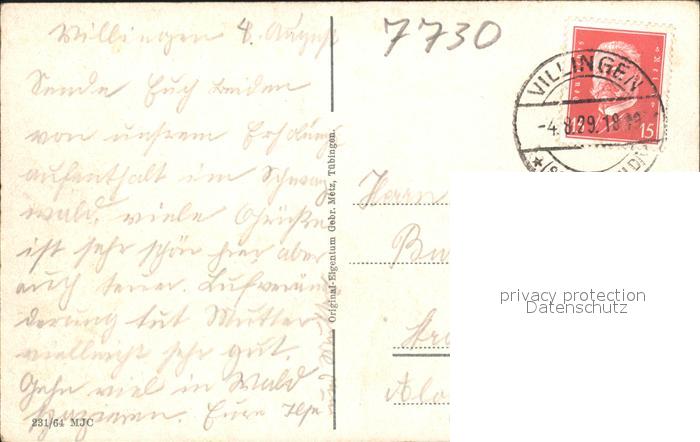 Villingen 4. August
Sende Euch beiden
von unsrem Erholungs
aufenthalt im Schwarz
wald, viele Grüße
ist sehr schön hier aber
auch teuer. Luftverän
derung tut Mutter
vielleicht sehr gut.
Gehn viel in Wald
spazieren. Eure Ilse
231/64 MJC
Original-Eigentum Gebr. Metz, Tübingen.
7730
VILLINGEN
-4.8.29.18
15
Herrn
privacy protection
Datenschutz